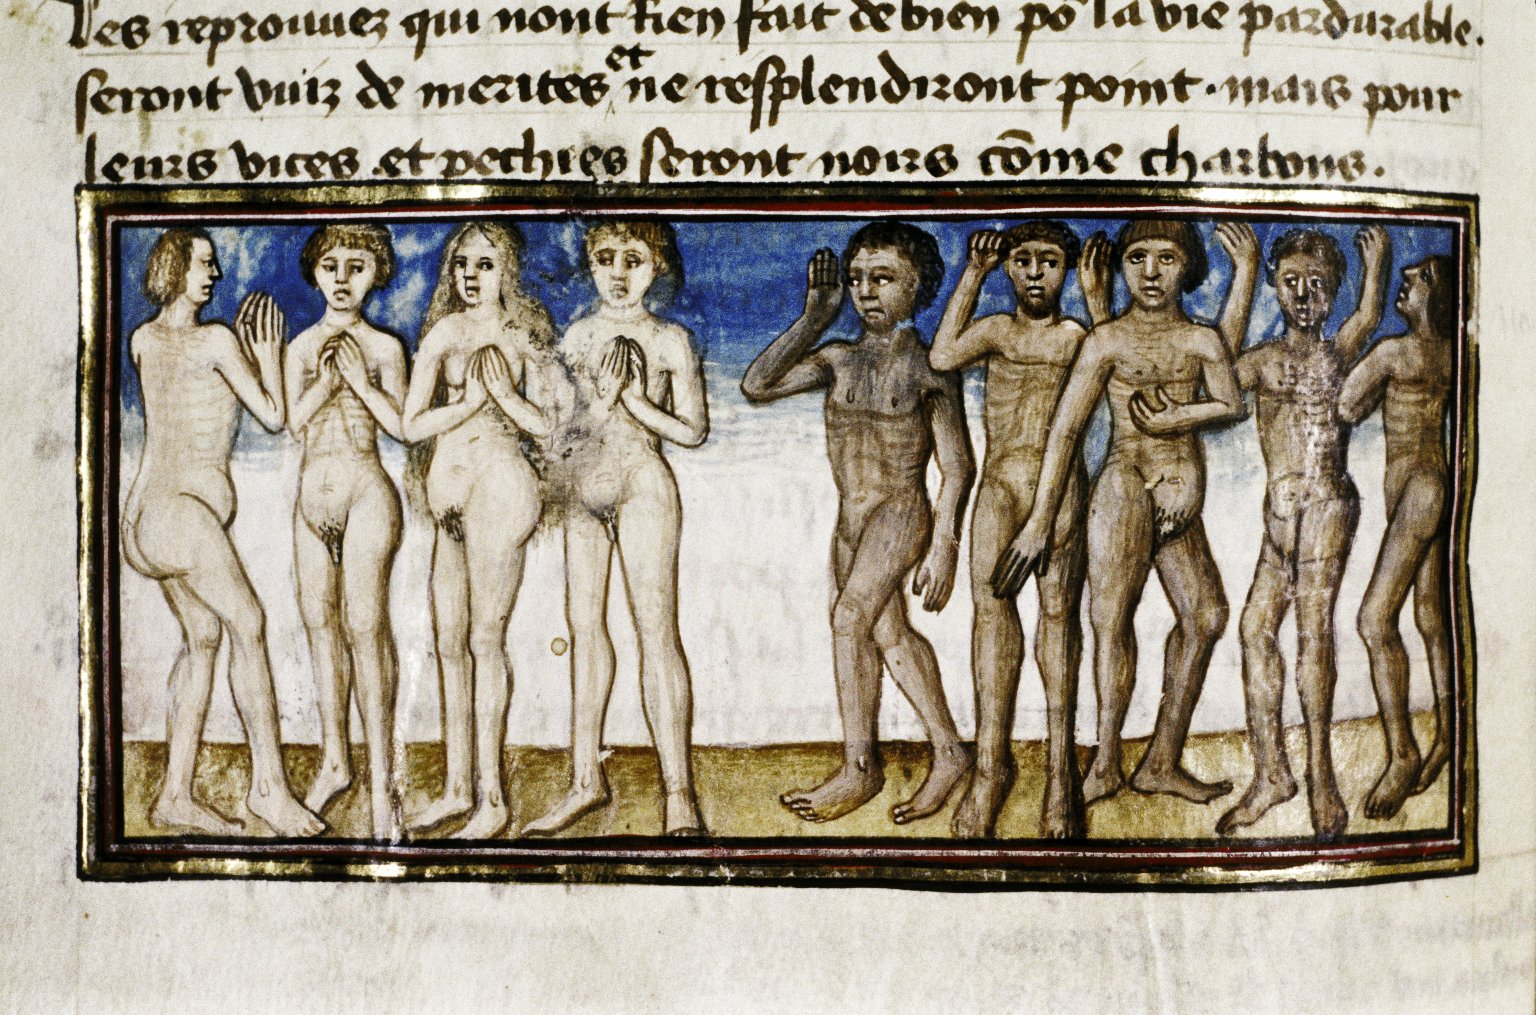 Les reprouuez qui nont Rien fait de bien po᷒ la vie pardurable.
seront vuiz de merites et ne resplendiront point . mais pour
leurs vices . et pechies seront noirs cōme charbons .